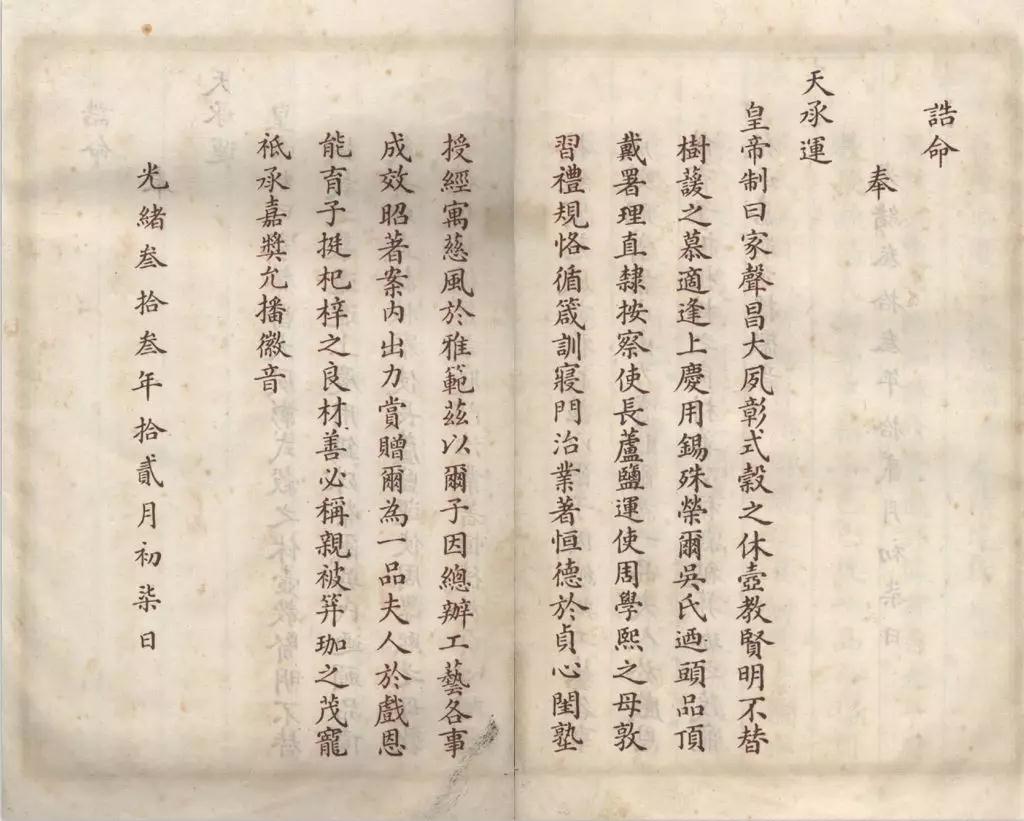 誥命
奉
天承運
皇帝制曰家聲昌大夙彰式穀之休壼教賢明不替
樹諼之慕適逢上慶用錫殊榮爾吳氏迺頭品頂
戴署理直隸按察使長蘆鹽運使周學熙之母敦
習禮規恪循箴訓寢門治業著恒德於貞心閨塾
授經寓慈風於雅範茲以爾子因總辦工藝各事
成效昭著案內出力賞贈爾為一品夫人於戲恩
能育子挺杞梓之良材善必稱親被笄珈之茂寵
祗承嘉獎允播徽音
光緒叁拾叁年拾貳月初柒日